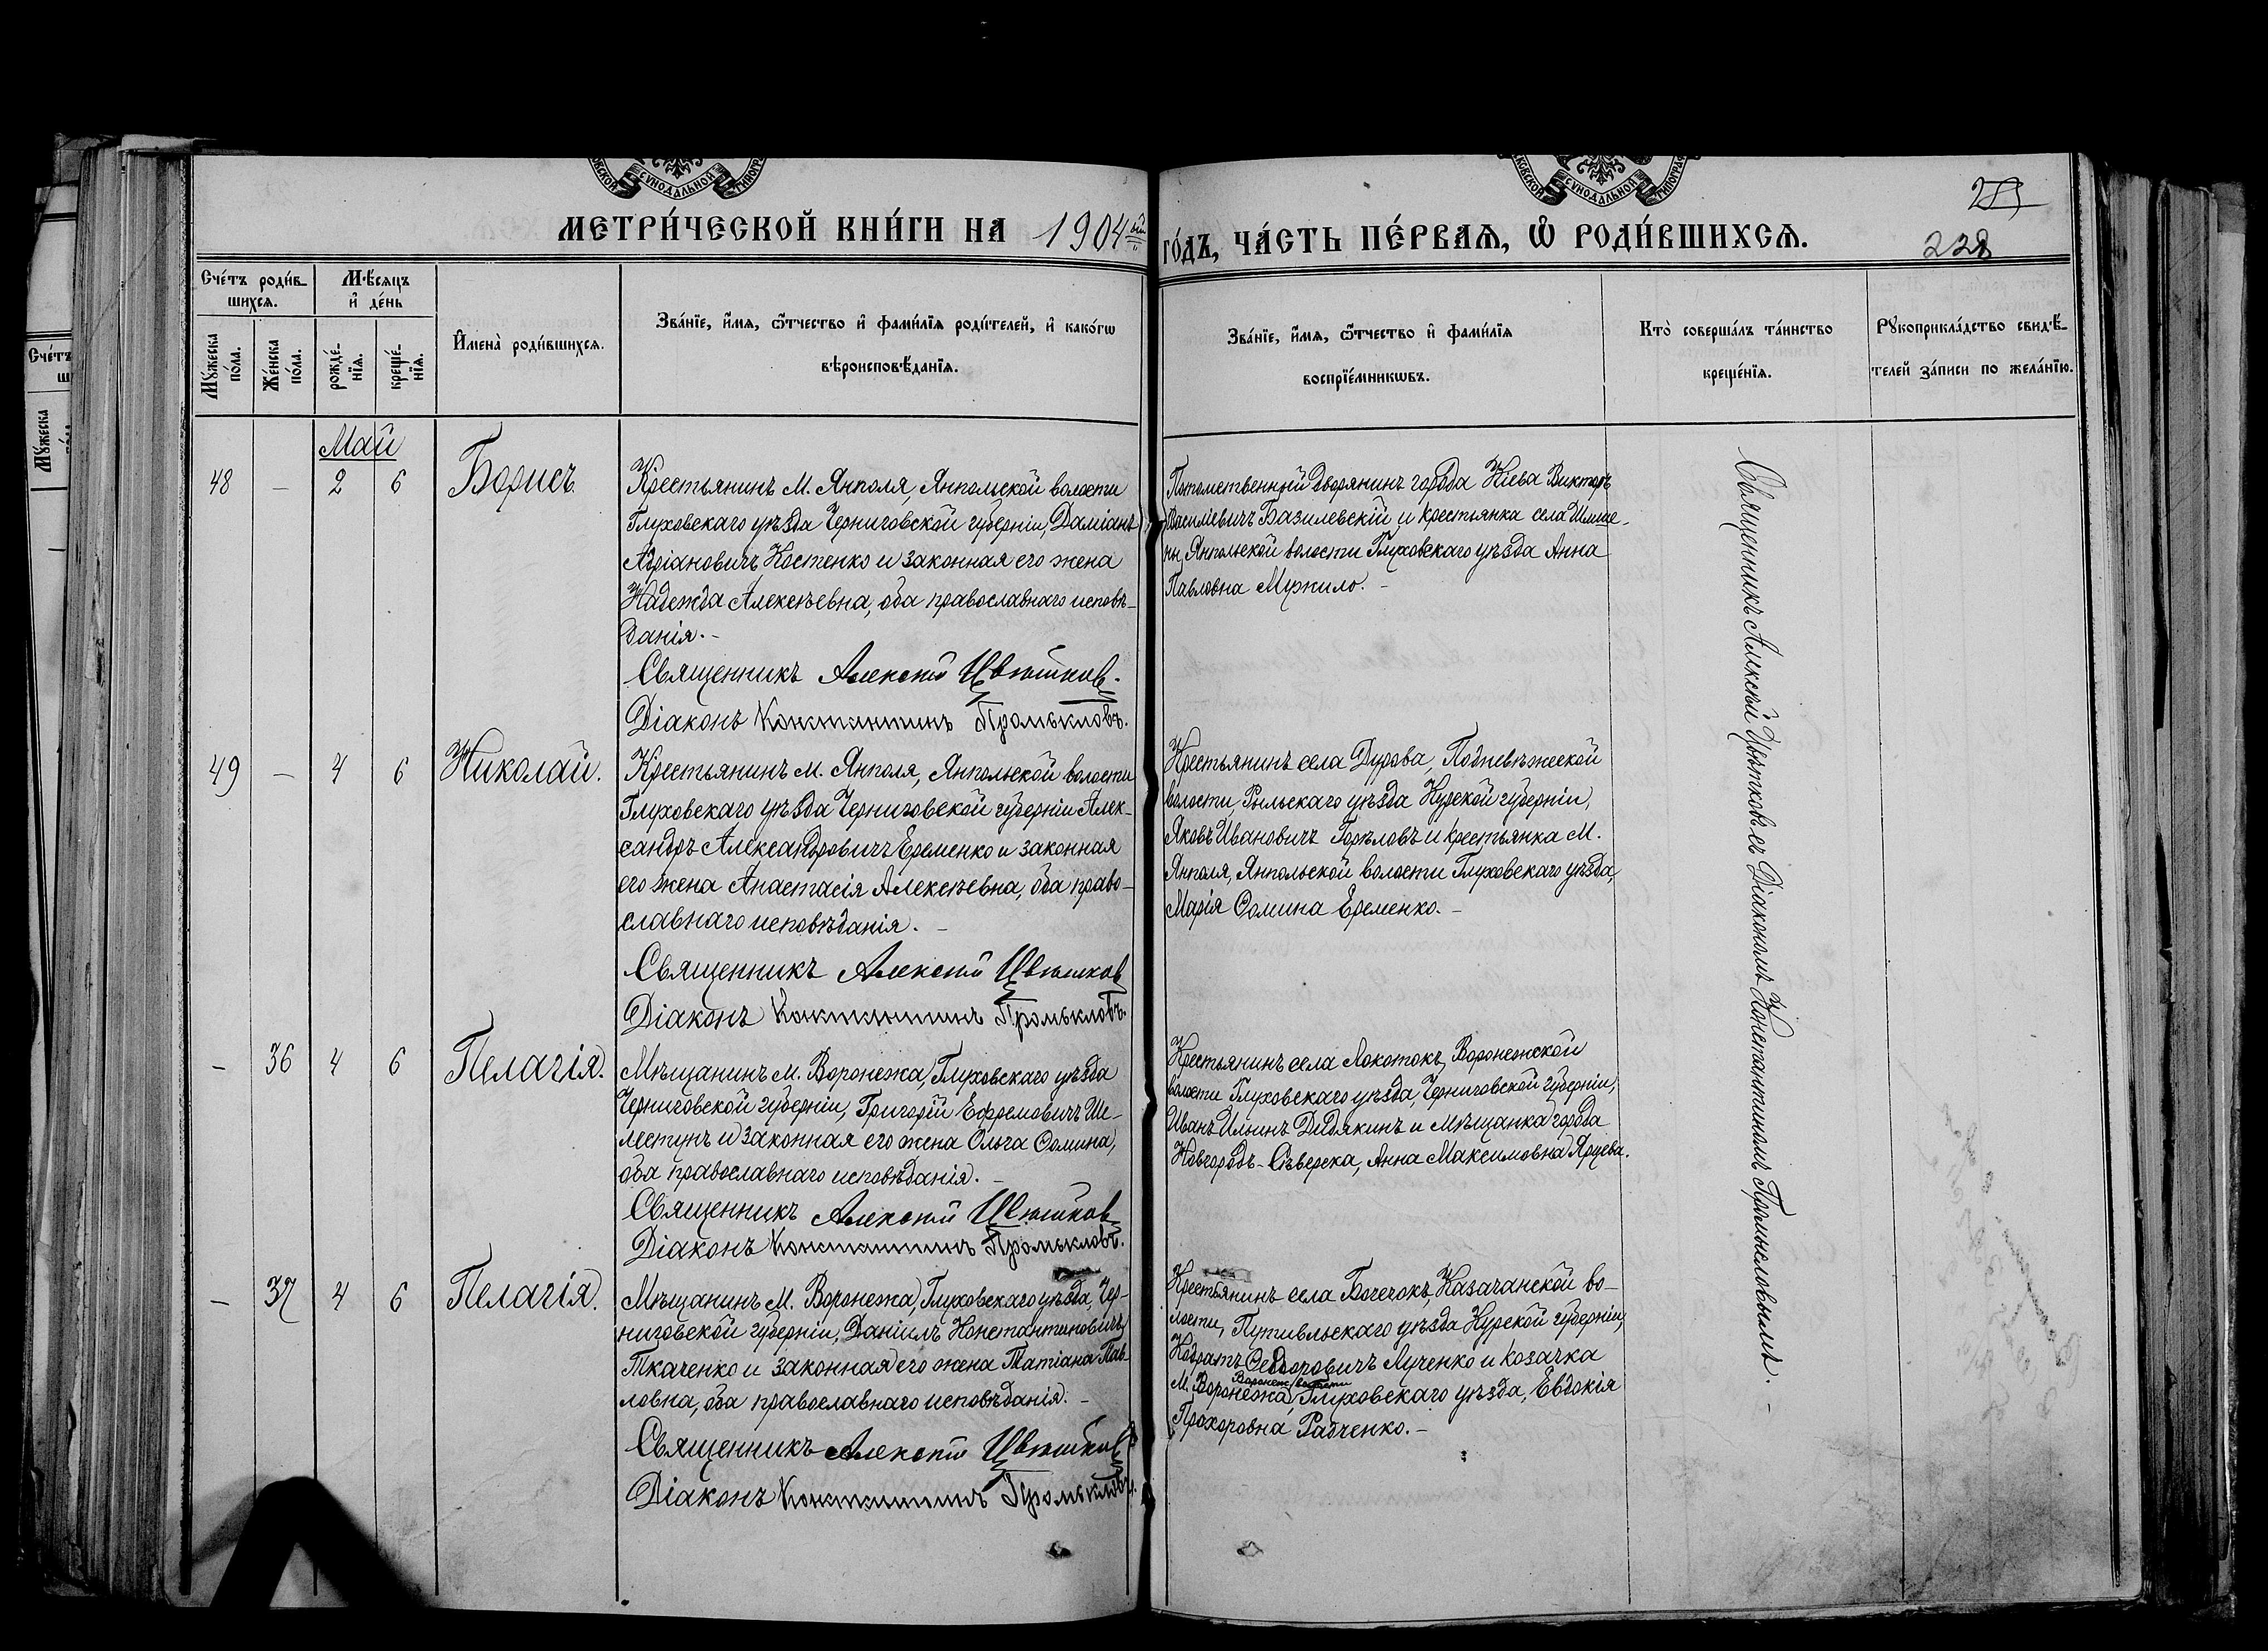 СУНОДАЛЬНОЙ
СУНОДАЛЬНОЙ
МЕТРИ́ЧЕСКОЙ КНИ́ГИ НА 1904ый
ГО́ДЪ, ЧА́СТЬ ПЕ́РВАѦ, Ѡ РОДИ́ВШИХСѦ.
228
Сче́тъ роди́в-
шихсѧ.
Мѣ́сѧцъ
и҆ де́нь
Мꙋ́жеска
по́ла.
Же́нска
по́ла.
рожде́-
нїѧ.
креще́-
нїѧ.
И҆мена̀ роди́вшихсѧ.
Зва́нїе, и҆́мѧ, ѻ҆́тчество и҆ фами́лїѧ роди́телей, и҆ како́гѡ
вѣроисповѣ́данїѧ.
Зва́нїе, и҆́мѧ, ѻ҆́тчество и҆ фами́лїѧ
воспрїе́мникѡвъ.
Кто̀ соверша́лъ та́инство
креще́нїѧ.
Рꙋкоприкла́дство свидѣ́-
телей за́писи по жела́нїю.
Май
48 — 2 6 Борисъ.
Крестьянинъ М. Янполя, Янпольской волости
Глуховскаго уѣзда Черниговской губерніи, Даміанъ
Адріановичъ Костенко и законная его жена
Надежда Алексѣевна, оба православнаго исповѣ-
данія.-
Священникъ Алексѣй Цвѣтков.
Діаконъ Константинъ Промысловъ.
Потомственный дворянинъ города Кіева Викторъ
Василіевичъ Базилевскій и крестьянка села
Янпольской волости Глуховскаго уѣзда Анна
Павловна Мужило. -
49 — 4 6 Николай.
Крестьянинъ м. Янполя, Янпольской волости
Глуховскаго уѣзда Черниговской губерніи Алек-
сандръ Александровичъ Еременко и законная
его жена Анастасія Алексѣевна, оба право-
славнаго исповѣданія. -
Священникъ Алексѣй Цвѣтков
Діаконъ Константинъ Промысловъ.
Крестьянинъ села Дурова,
волости, Рыльскаго уѣзда Курской губерніи,
Яковъ Ивановичъ Горѣловъ и крестьянка М.
Янполя, Янпольской волости Глуховскаго уѣзда,
Марія Ѳомина Еременко. -
— 36 4 6 Пелагія.
Мѣщанинъ м. Воронежа, Глуховскаго уѣзда
Черниговской губерніи, Григорій Ефремовичъ Ше-
лестунъ и законная его жена Ольга Ѳомина,
оба православнаго исповѣданія. -
Священникъ Алексѣй Цвѣтков
Діаконъ Константинъ Промысловъ.
Крестьянинъ села Локотокъ, Воронежской
волости Глуховскаго уѣзда, Черниговской губерніи,
Иванъ Ильинъ Дидякинъ и мѣщанка города
Новгородъ-Сѣверска, Анна Максимовна Ярцева.
— 37 4 6 Пелагія.
Мѣщанинъ М. Воронежа, Глуховскаго уѣзда, Чер-
ниговской губерніи, Даніилъ Константиновичъ
Ткаченко и законная его жена Татіана Пав-
ловна, оба православнаго исповѣданія. -
Священникъ Алексѣй Цвѣтков
Діаконъ Константинъ Промысловъ.
Крестьянинъ села Бочечокъ, Казачанской во-
лости, Путивльскаго уѣзда Курской губерніи,
Кодратъ Ѳеодоровичъ Лученко и козачка
Воронеж. волости
М. Воронежа, Глуховскаго уѣзда, Евдокія
Прохоровна Радченко. -
Священникъ Алексѣй Цвѣтковъ съ Діакономъ Константиномъ Промысловымъ. -
Сче́тъ
Мꙋ́жеска